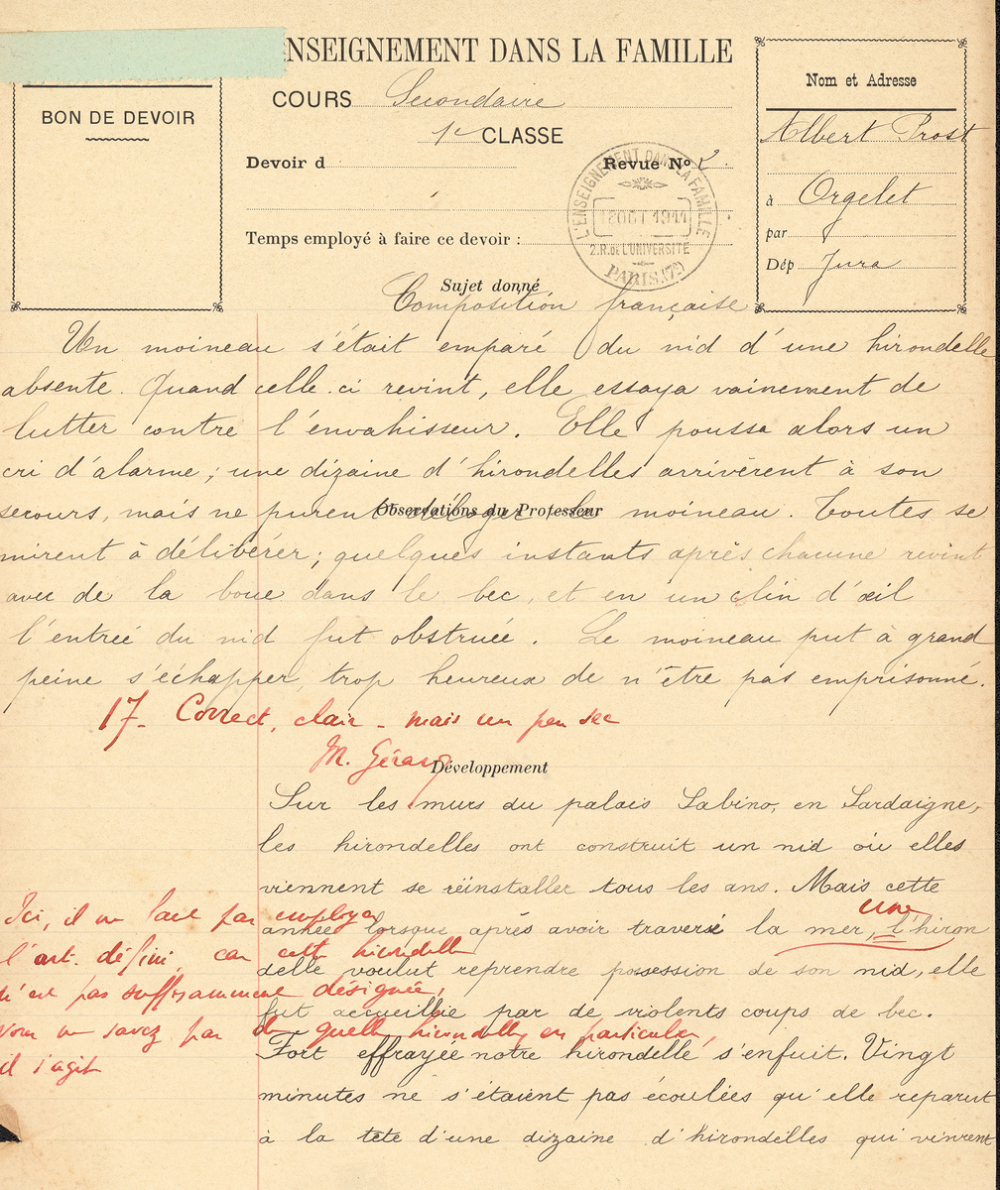 ENSEIGNEMENT DANS LA FAMILLE
BON DE DEVOIR
COURS Secondaire
1e CLASSE
Devoir d
Revue No 2.
Temps employé à faire ce devoir :
L'ENSEIGNEMENT DANS LA FAMILLE
OCT 1911
2.R.de L'UNIVERSITÉ
PARIS.(7e)
Nom et Adresse
Albert Prost
à Orgelet
par
Dép Jura
Sujet donné
Composition française
Un moineau s'était emparé du nid d'une hirondelle
absente. Quand celle-ci revint, elle essaya vainement de
lutter contre l'envahisseur. Elle poussa alors un
cri d'alarme ; une dizaine d'hirondelles arrivèrent à son
secours, mais ne purent déloger le moineau. Toutes se
Observations du Professeur
mirent à délibérer ; quelques instants après chacune revint
avec de la boue dans le bec, et en un clin d'œil
l'entrée du nid fut obstruée. Le moineau put à grand
peine s'échapper, trop heureux de n'être pas emprisonné.
17- Correct, clair - mais un peu sec
M. Gérard
Développement
Sur les murs du palais Sabino, en Sardaigne,
les hirondelles ont construit un nid où elles
viennent se réinstaller tous les ans. Mais cette
une
année lorsque après avoir traversé la mer, l'hiron
delle voulut reprendre possession de son nid, elle
fut accueillie par de violents coups de bec.
Fort effrayée notre hirondelle s'enfuit. Vingt
minutes ne s'étaient pas écoulées qu'elle reparut
à la tête d'une dizaine d'hirondelles qui vinrent
Ici, il ne faut pas employer
l'art. défini, car cette hirondelle
n'est pas suffisamment désignée,
vous ne savez pas de quelle hirondelle en particulier
il s'agit